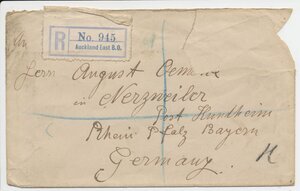 R No. 945
Auckland East B.O.
Herrn August
in Nerzweiler
Post Hundheim
Rhein Pfalz Bayern
Germany